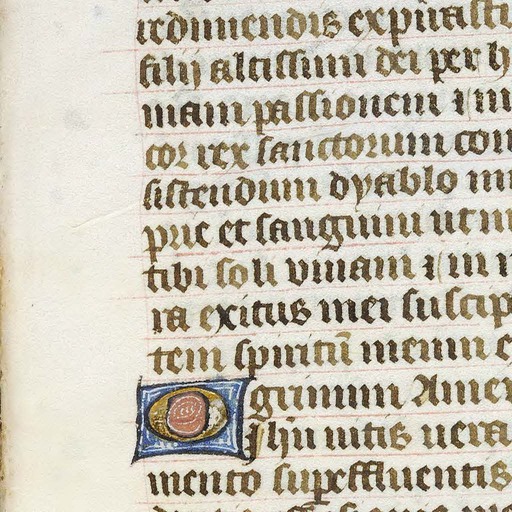 redimendis expirasti
filij altissimi dei per h
mam passionem ⁊ in
cor rex sanctorum con
sistendum dyablo m
prie et sanguini ut m
tibi soli vivam ⁊ in
ra exitus mei suscip
tem spiritū meum e
grinum Amen
O Jhu vitis vera
mento superffluentis